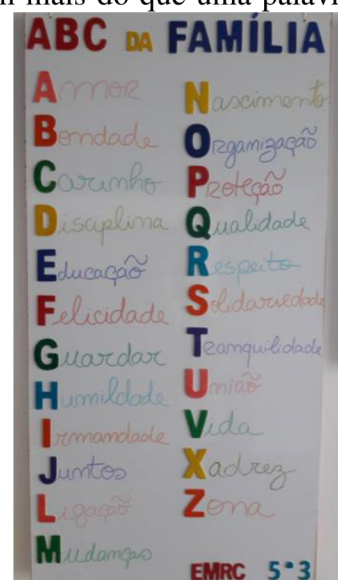 mais do que uma
ABC DA FAMÍLIA
Amor
Bondade
Carinho
Disciplina
Educação
Felicidade
Guardar
Humildade
Irmandade
Juntos
Ligação
Mudanças
Nascimento
Organização
Proteção
Qualidade
Respeito
Solidariedade
Tranquilidade
União
Vida
Xadrez
Zona
EMRC 5º3